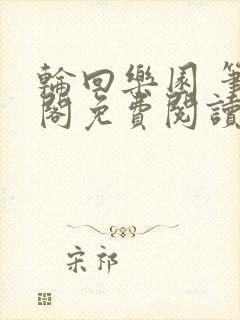 輪回樂園 筆
閣免費閱讀
宋祁